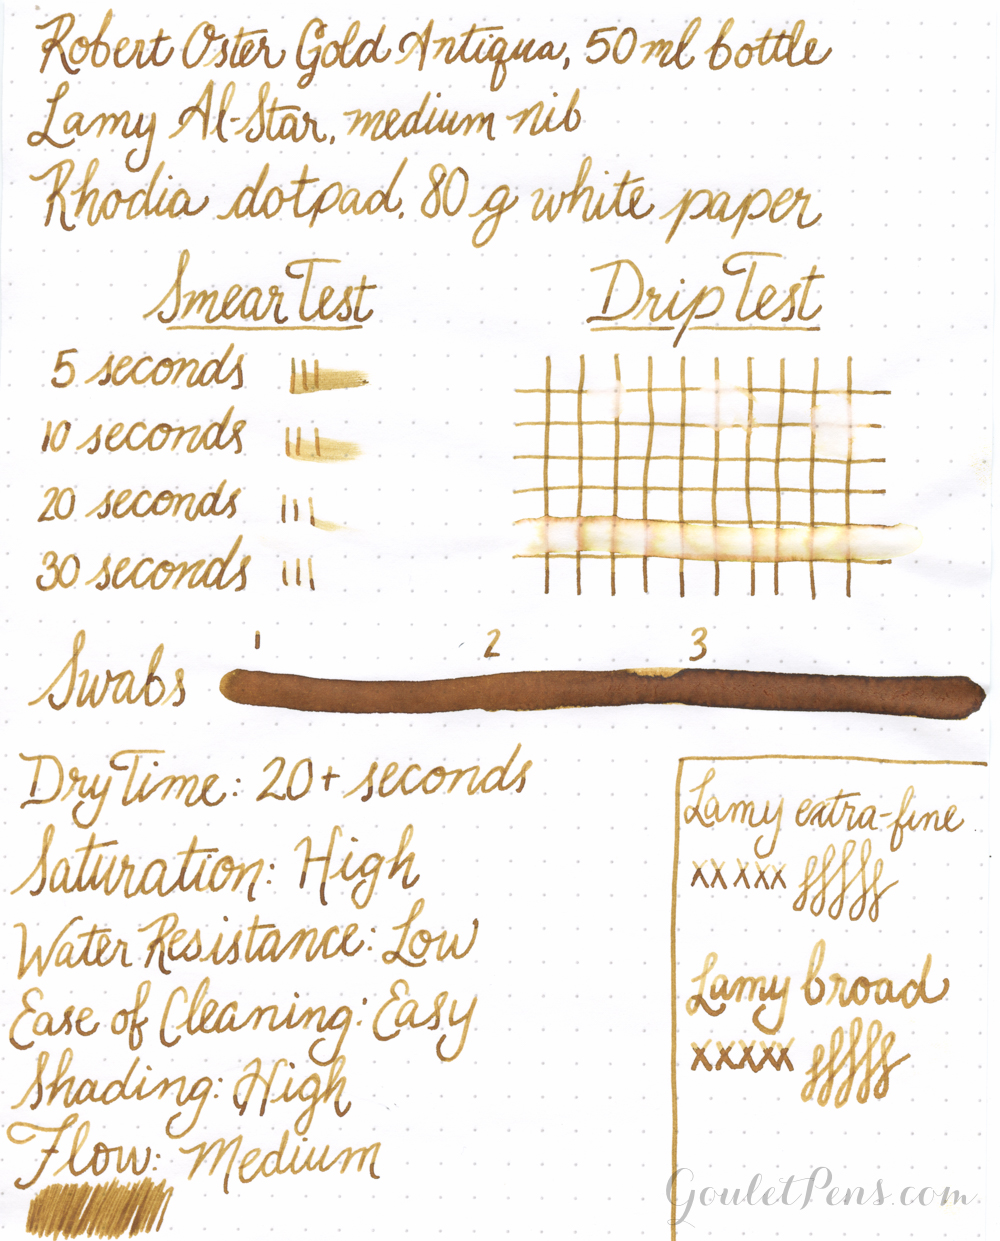 Robert Oster Gold Antiqua, 50ml bottle
Lamy Al-Star, medium nib
Rhodia dotpad, 80 g white paper
Smear Test
5 seconds
10 seconds
20 seconds
30 seconds
Drip Test
Swabs
1 2 3
Dry Time: 20+ seconds
Saturation: High
Water Resistance: Low
Ease of Cleaning: Easy
Shading: High
Flow: Medium
Lamy extra-fine
xxxxx
Lamy broad
xxxxx
GouletPens.com